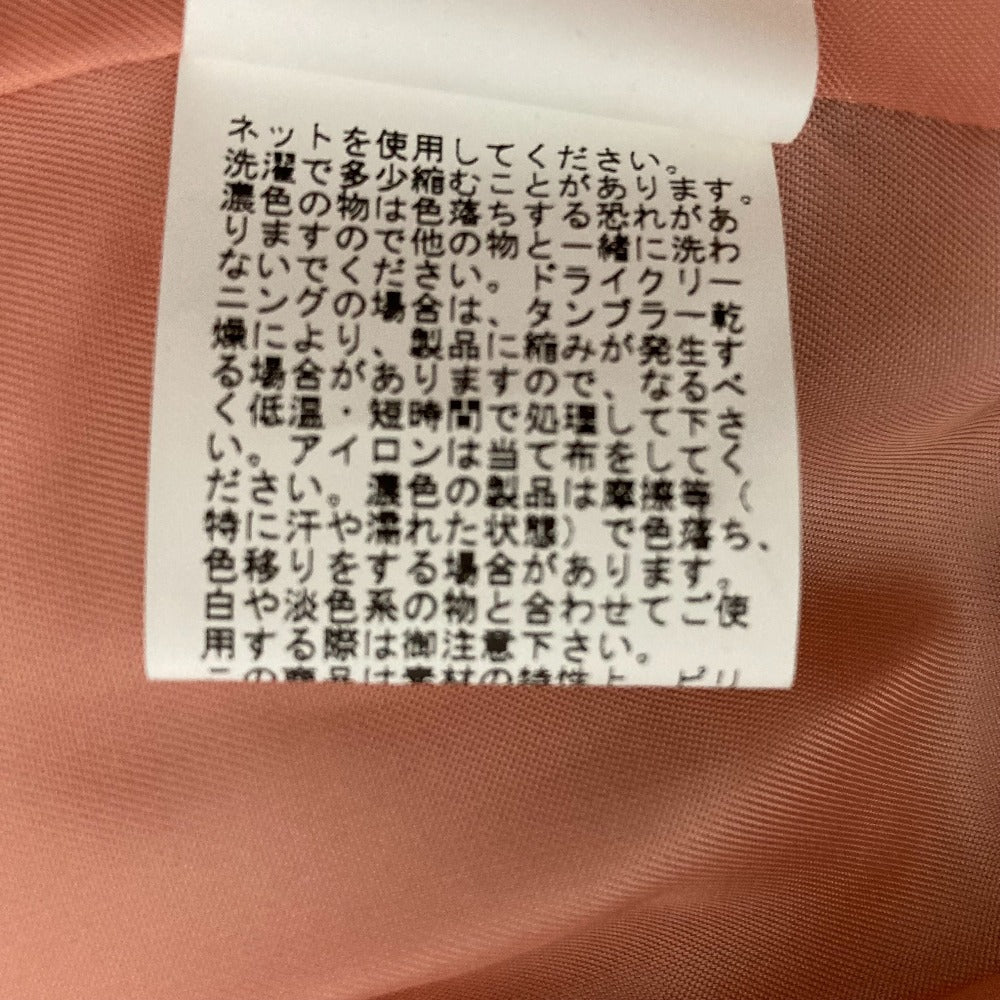 ネットを使用してください。
洗濯で多少縮むことがあります。
濃色の物は色落ちする恐れがあ
りますので他の物と一緒に洗わ
ないでください。ドライクリー
ニングの場合は、タンブラー乾
燥により、製品に縮みが発生す
る場合がありますので、なるべ
く低温・短時間で処理して下さ
い。アイロンは当て布をしてく
ださい。濃色の製品は摩擦等(
特に汗や濡れた状態)で色落ち、
色移りをする場合があります。
白や淡色系の物と合わせてご使
用する際は御注意下さい。
この商品は素材の特性上、ピリ